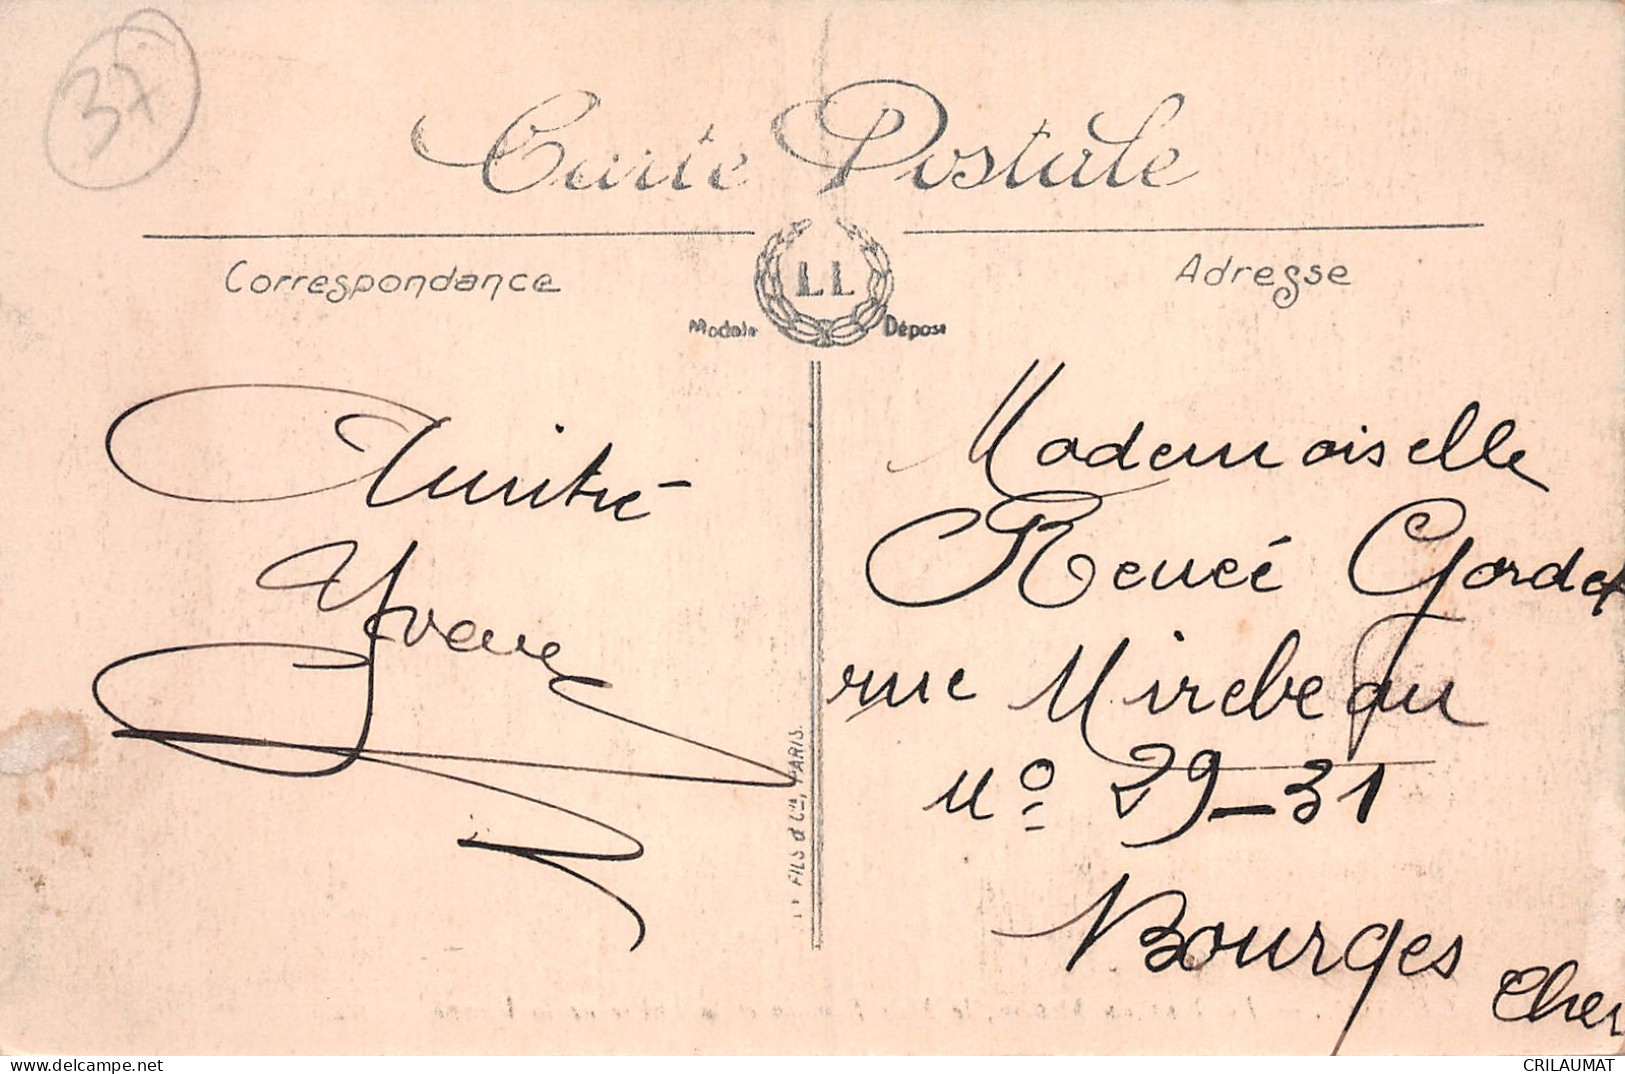 37
Carte Postale
Correspondance
LL
Adresse
Modèle Déposé
Amitié
Yvonne
Mademoiselle
Renée Gordet
rue Mirebeau
No 29-31
Bourges
Cher
FILS & Cie, PARIS.
CRILAUMAT